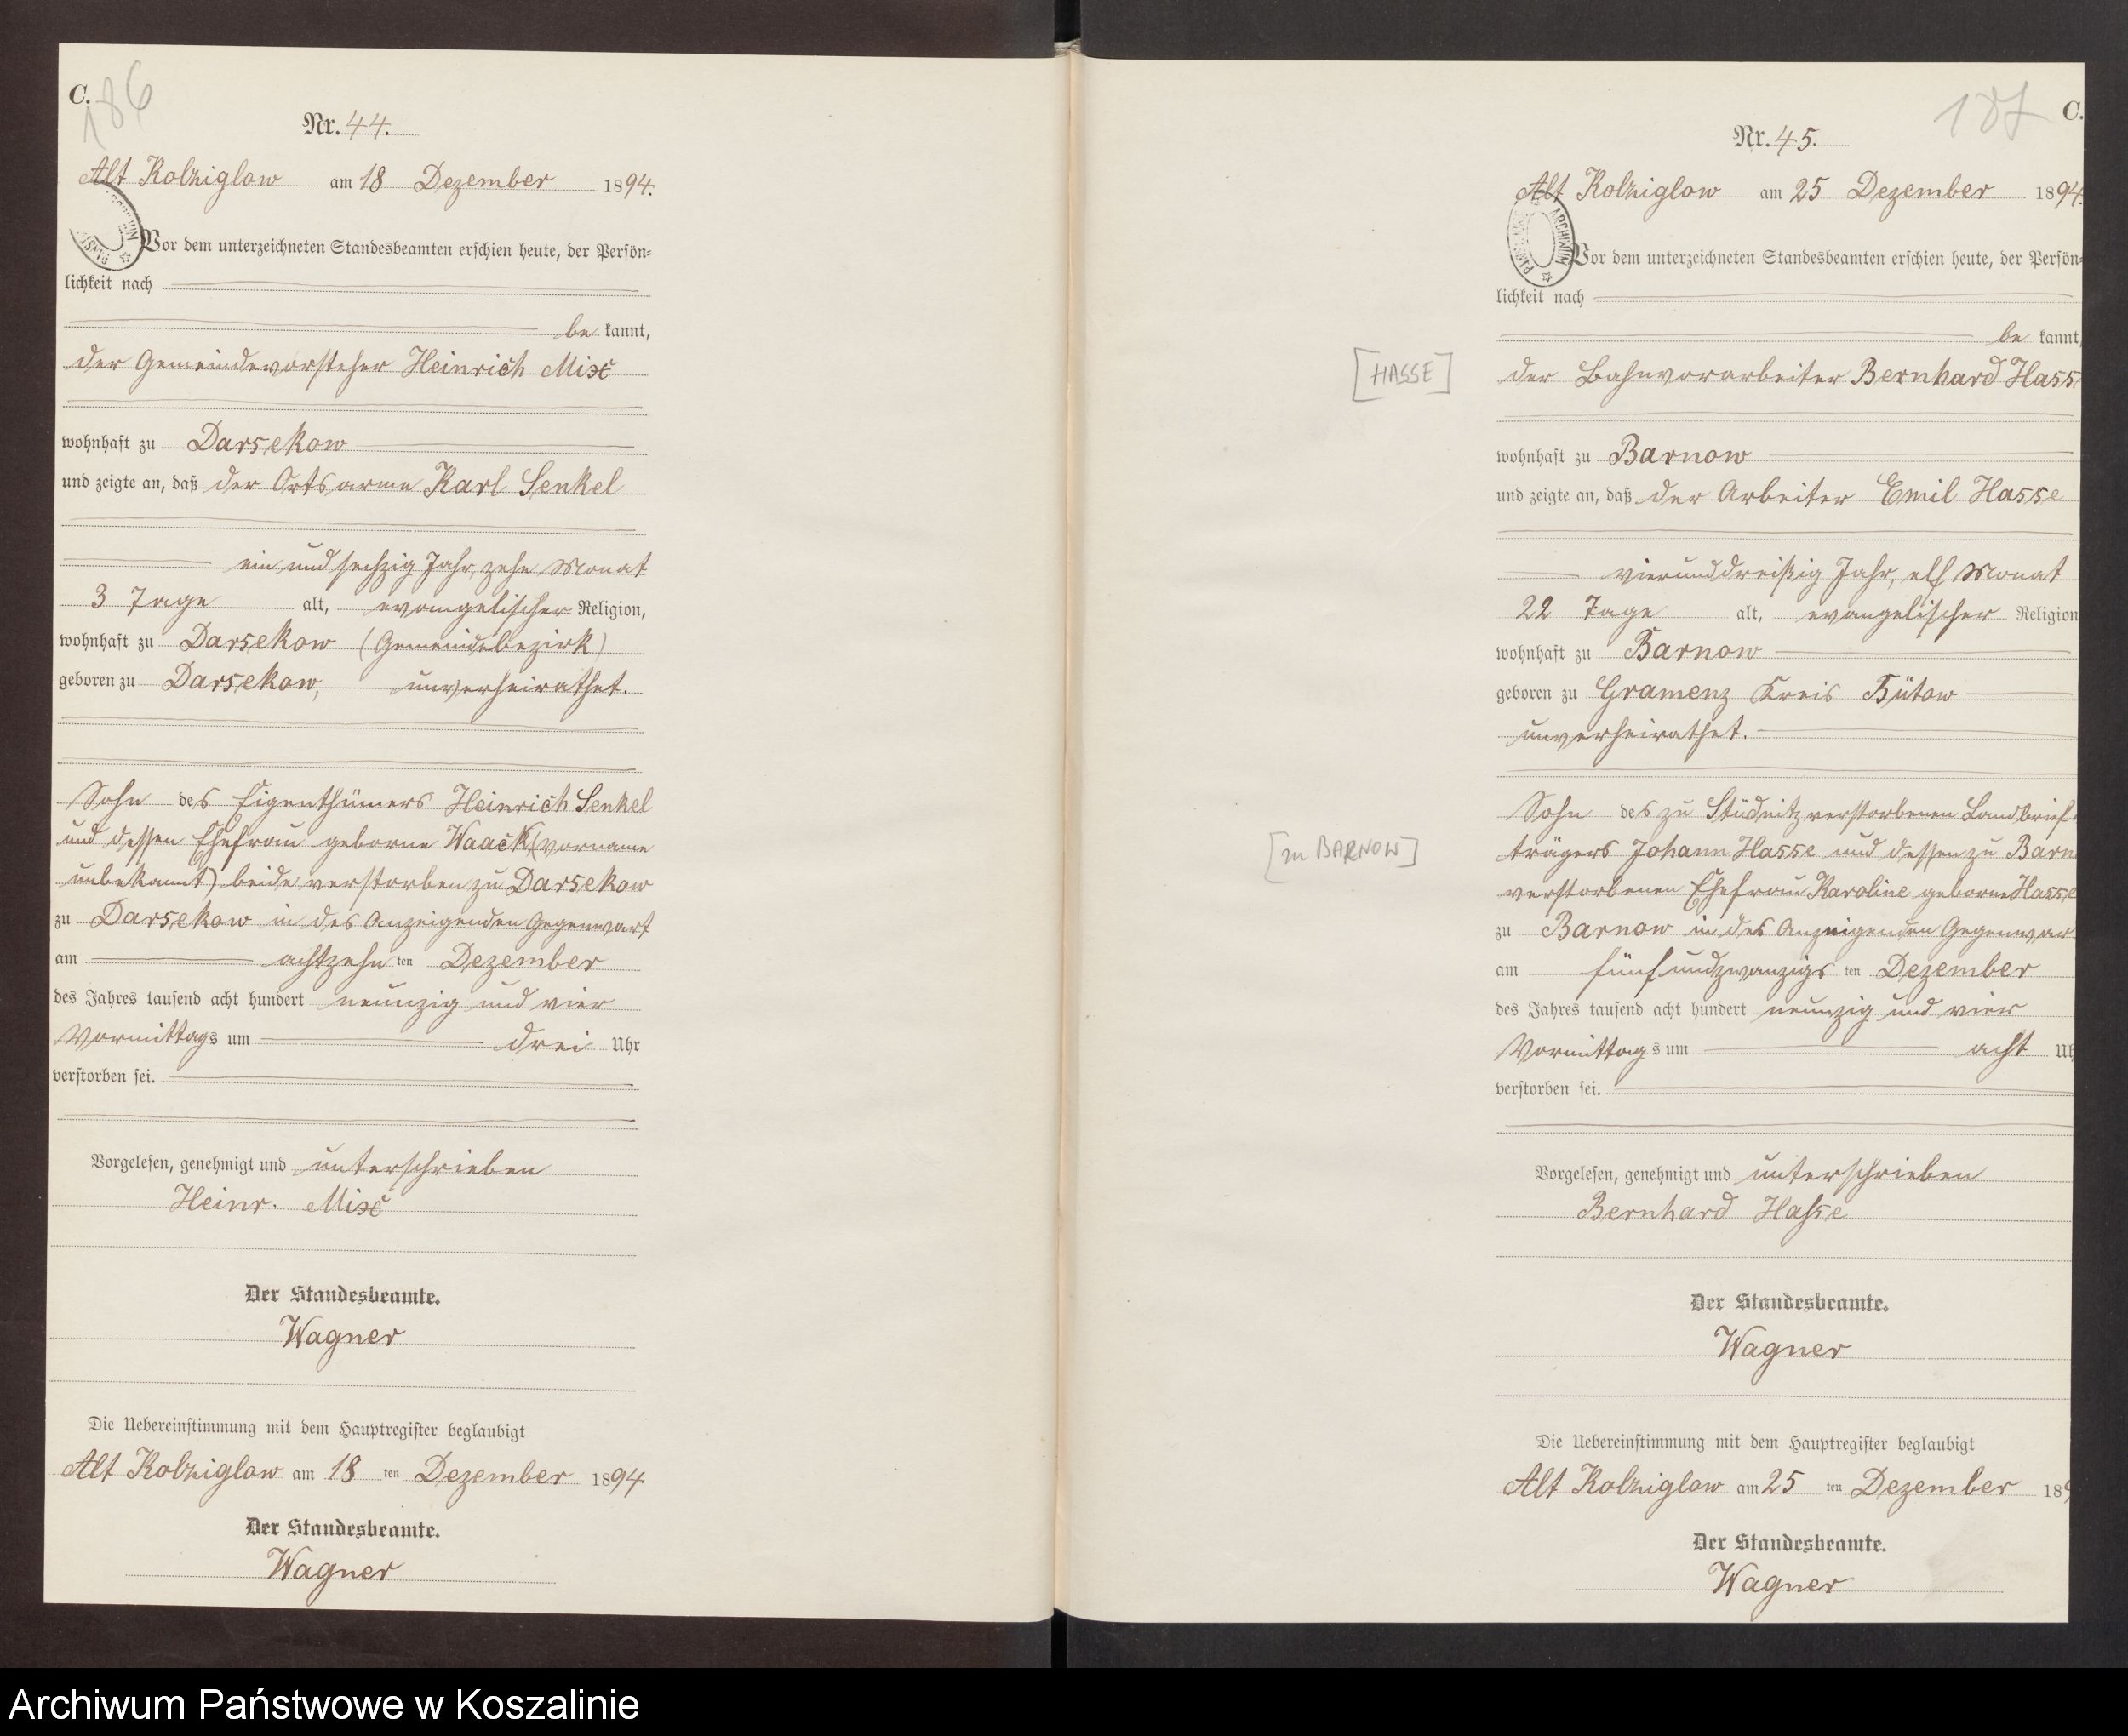 C.
186
Nr. 44.
Alt Kolziglow am 18 Dezember 1894.
Vor dem unterzeichneten Standesbeamten erschien heute, der Persön=
lichkeit nach
be kannt,
der Gemeindevorsteher Heinrich Mix
wohnhaft zu Darsekow
und zeigte an, daß der Ortsarme Karl Senkel
ein und sechzig Jahr, zehn Monat
3 Tage alt, evangelischer Religion,
wohnhaft zu Darsekow (Gemeindebezirk)
geboren zu Darsekow, unverheirathet.
Sohn des Eigenthümers Heinrich Senkel
und dessen Ehefrau geborne Waack (Vorname
unbekannt) beide verstorben zu Darsekow
zu Darsekow in des Anzeigenden Gegenwart
am achtzehn ten Dezember
des Jahres tausend acht hundert neunzig und vier
Vormittags um drei Uhr
verstorben sei.
Vorgelesen, genehmigt und unterschrieben
Heinr. Mix
Der Standesbeamte.
Wagner
Die Uebereinstimmung mit dem Hauptregister beglaubigt
Alt Kolziglow am 18 ten Dezember 1894.
Der Standesbeamte.
Wagner
187
C.
Nr. 45.
Alt Kolziglow am 25 Dezember 1894.
ARCHIWUM
Vor dem unterzeichneten Standesbeamten erschien heute, der Persön=
lichkeit nach
be kannt,
[HASSE]
der Bahnvorarbeiter Bernhard Hass
wohnhaft zu Barnow
und zeigte an, daß der Arbeiter Emil Hasse
vierunddreißig Jahr, elf Monat
22 Tage alt, evangelischer Religion
wohnhaft zu Barnow
geboren zu Gramenz Kreis Bütow
unverheirathet.
Sohn des zu Stüdnitz verstorbenen Landbrief-
trägers Johann Hasse und dessen zu Barn
[zu BARNOW]
verstorbenen Ehefrau Karoline geborne Hasse
zu Barnow in des Anzeigenden Gegenwar
am fünfundzwanzigs ten Dezember
des Jahres tausend acht hundert neunzig und vier
Vormittags um acht Uh
verstorben sei.
Vorgelesen, genehmigt und unterschrieben
Bernhard Hasse
Der Standesbeamte.
Wagner
Die Uebereinstimmung mit dem Hauptregister beglaubigt
Alt Kolziglow am 25 ten Dezember 189
Der Standesbeamte.
Wagner
Archiwum Państwowe w Koszalinie